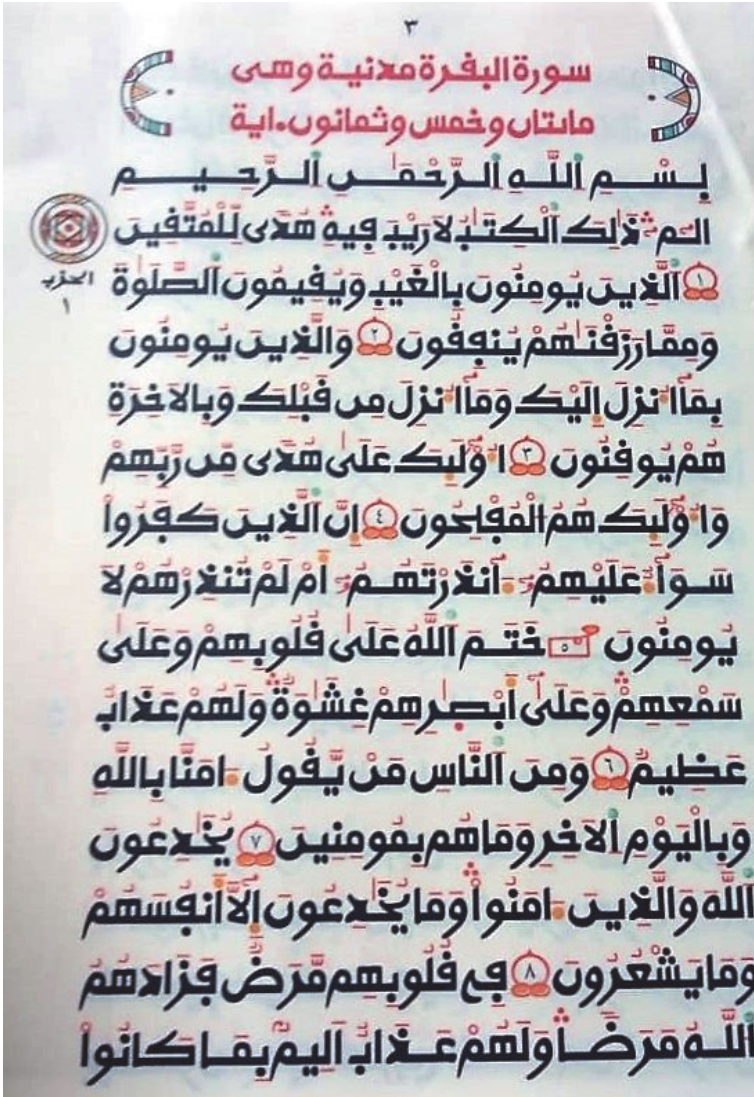 ٣
سورة البقرة مدنية وهى
مائتان وخمس وثمانون ءاية
بِسْمِ اِ۬للَّهِ اِ۬لرَّحْمَٰنِ اِ۬لرَّحِيمِ
أَلَٓمِّٓۖ ذَٰلِكَ اَ۬لْكِتَٰبُ لَا رَيْبَۖ فِيهِ هُدىٗ لِّلْمُتَّقِينَ
الحزب
١
١ اَ۬لذِينَ يُومِنُونَ بِالْغَيْبِ وَيُقِيمُونَ اَ۬لصَّلَوٰةَ
وَمِمَّا رَزَقْنَٰهُمْ يُنفِقُونَ ٢ وَالذِينَ يُومِنُونَ
بِمَآ أُنزِلَ إِلَيْكَ وَمَآ أُنزِلَ مِن قَبْلِكَ وَبِالَاخِرَةِ
هُمْ يُوقِنُونَ ٣ أُوْلَٰٓئِكَ عَلَىٰ هُدىٗ مِّن رَّبِّهِمْ
وَأُوْلَٰٓئِكَ هُمُ الْمُفْلِحُونَ ٤ إِنَّ اَ۬لذِينَ كَفَرُواْ
سَوَآءٌ عَلَيْهِمُۥٓ ءَآنذَرْتَهُمُۥٓ أَمْ لَمْ تُنذِرْهُمْ لَا
يُومِنُونَ ٥ خَتَمَ اَ۬للَّهُ عَلَىٰ قُلُوبِهِمْ وَعَلَىٰ
سَمْعِهِمْ وَعَلَىٰٓ أَبْصٰ۪رِهِمْ غِشَٰوَةٞ وَلَهُمْ عَذَابٌ
عَظِيمٞ ٦ وَمِنَ اَ۬لنَّاسِ مَنْ يَّقُولُ ءَامَنَّا بِاللَّهِ
وَبِالْيَوْمِ اِ۬لَاخِرِ وَمَا هُم بِمُومِنِينَ ٧ يُخَٰدِعُونَ
اَ۬للَّهَ وَالذِينَ ءَامَنُواْ وَمَا يُخَٰدِعُونَ إِلَّآ أَنفُسَهُمْ
وَمَا يَشْعُرُونَ ٨ فِے قُلُوبِهِم مَّرَضٞ فَزَادَهُمُ
اُ۬للَّهُ مَرَضاٗ وَلَهُمْ عَذَابٌ أَلِيمُۢ بِمَا كَانُواْ